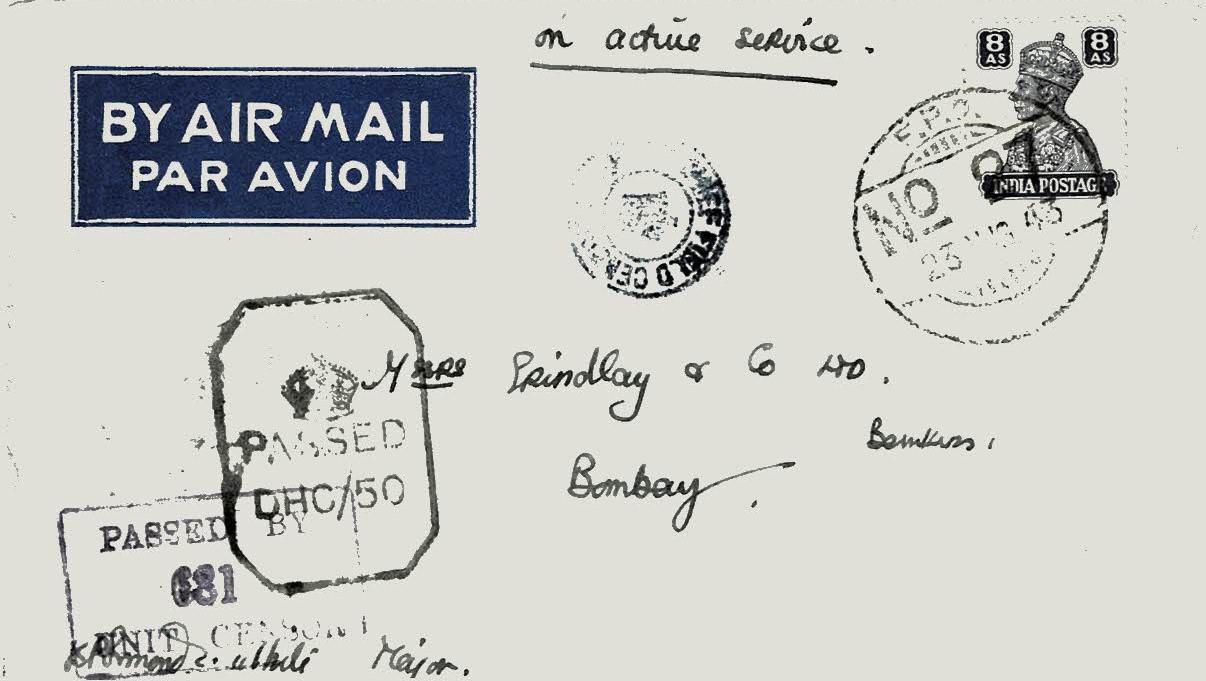 on active service.
8 AS 8 AS
BY AIR MAIL
PAR AVION
F.P.O.
No
INDIA POSTAGE
23 AUG 43
FIELD
Grindlay & Co LTD.
Bankers,
Bombay.
PASSED
DHC/50
PASSED BY
681
UNIT CENSOR
Major.